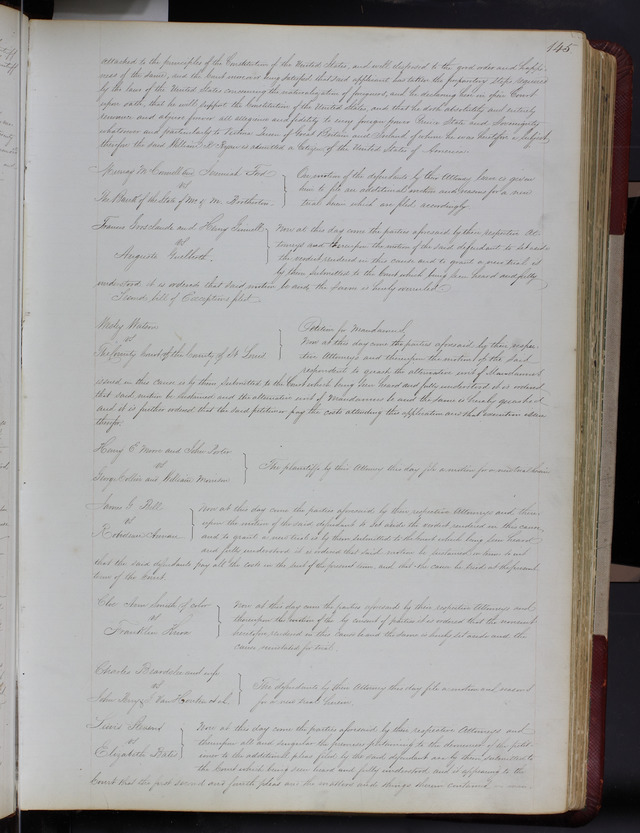 145
attached to the principles of the Constitution of the United States, and well disposed to the good order and happi-
ness of the same; and the Court moreover being satisfied that said applicant has taken the preparatory steps required
by the laws of the United States concerning the naturalization of foreigners, and he declaring here in open Court
upon oath, that he will support the Constitution of the United States, and that he doth absolutely and entirely
renounce and abjure forever all allegiance and fidelity to every foreign prince Power State and Sovereignty
whatsoever and particularly to Victoria Queen of Great Britain and Ireland of whom he was heretofore a subject,
therefore the said William Ryan is admitted a Citizen of the United States of America.
Jeremiah
vs
The Bank of the State of Mo
On motion of the defendants by their Attorney leave is given
him to file an additional motion and reasons for a new
trial herein which are filed accordingly.
Francis and Henry
vs
Auguste
Now at this day come the parties aforesaid by their respective At-
torneys and thereupon the motion of the said defendant to set aside
the verdict rendered in this cause and to grant a new trial is
by them submitted to the Court which being seen heard and fully
understood it is ordered that said motion be and the same is hereby overruled.
bill of Exceptions filed.
Wesley Watson
vs
The County Court of the County of St Louis
Petition for Mandamus
Now at this day come the parties aforesaid by their respec-
tive Attorneys and thereupon the motion of the said
respondent to quash the alternative writ of Mandamus
issued in this cause is by them submitted to the Court which being seen heard and fully understood it is ordered
that said motion be sustained and the alternative writ of Mandamus be and the same is hereby quashed
and it is further ordered that the said petitioner pay the costs attending this application and that execution issue
therefor.
Henry and John
vs
and William
The plaintiffs by their Attorney this day file a motion for a new trial herein
James G Bell
vs
Robertson
Now at this day come the parties aforesaid by their respective Attorneys and there-
upon the motion of the said defendant to set aside the verdict rendered in this cause
and to grant a new trial is by them submitted to the Court which being seen heard
and fully understood it is ordered that said motion be sustained
that the said defendants pay all the costs in the suit of the present term, and that the cause be tried at the present
term of the Court.
Ann Smith of color
vs
Franklin
Now at this day come the parties aforesaid by their respective Attorneys and
thereupon by consent of parties it is ordered that the
heretofore rendered in this cause be and the same is hereby set aside and the
cause reinstated for trial.
Charles Beardslee and wife
vs
John Henry Van
The defendants by their Attorney this day file a motion and reasons
for a new trial herein.
Lewis
vs
Elizabeth
Now at this day come the parties aforesaid by their respective Attorneys and
thereupon all and singular the premises pertaining to the demurrer of the petit-
ioner to the additional pleas filed by the said defendant are by them submitted to
the Court which being seen heard and fully understood, and it appearing to the
Court that the first second and fourth pleas and the matters and things therein contained